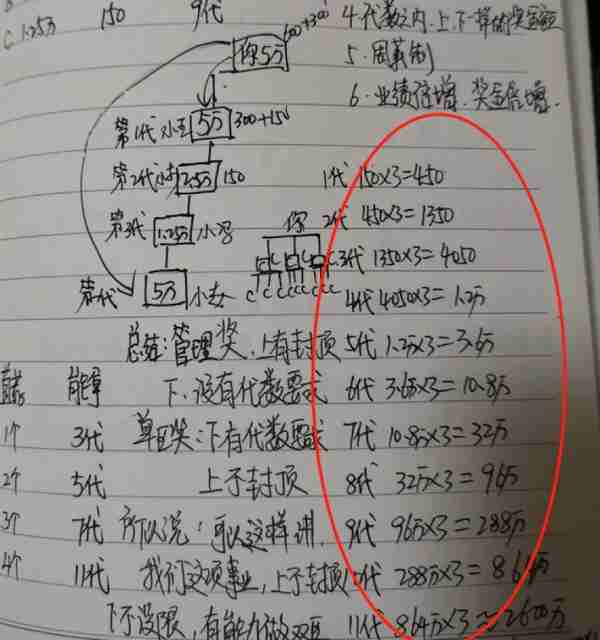 C 1.25万 150 9代
4代数之内.上.下一算
你5万 600+300
5.周薪制
6.业绩倍增.奖金倍增.
第1代 小 5万 300+150
第2代 2.5万 150
1代 150×3=450
第3代 1.25万 小冯
你 2代 450×3=1350
3代 1350×3=4050
C C C C C C C C
第代 5万 小
4代 4050×3=1.2万
总结:管理奖.上有封顶 5代 1.2万×3=3.6万
能拿 下.没有代数要求 6代 3.6万×3=10.8万
1个 3代 单 奖:下有代数要求 7代 10.8万×3=32万
2个 5代 上不封顶 8代 32万×3=96万
3个 7代 所以说:可以这样讲. 9代 96万×3=288万
4个 11代 我们这项事业,上不封顶 代 288万×3=864万
下不设限,有能力做 11代 864万×3≈2600万